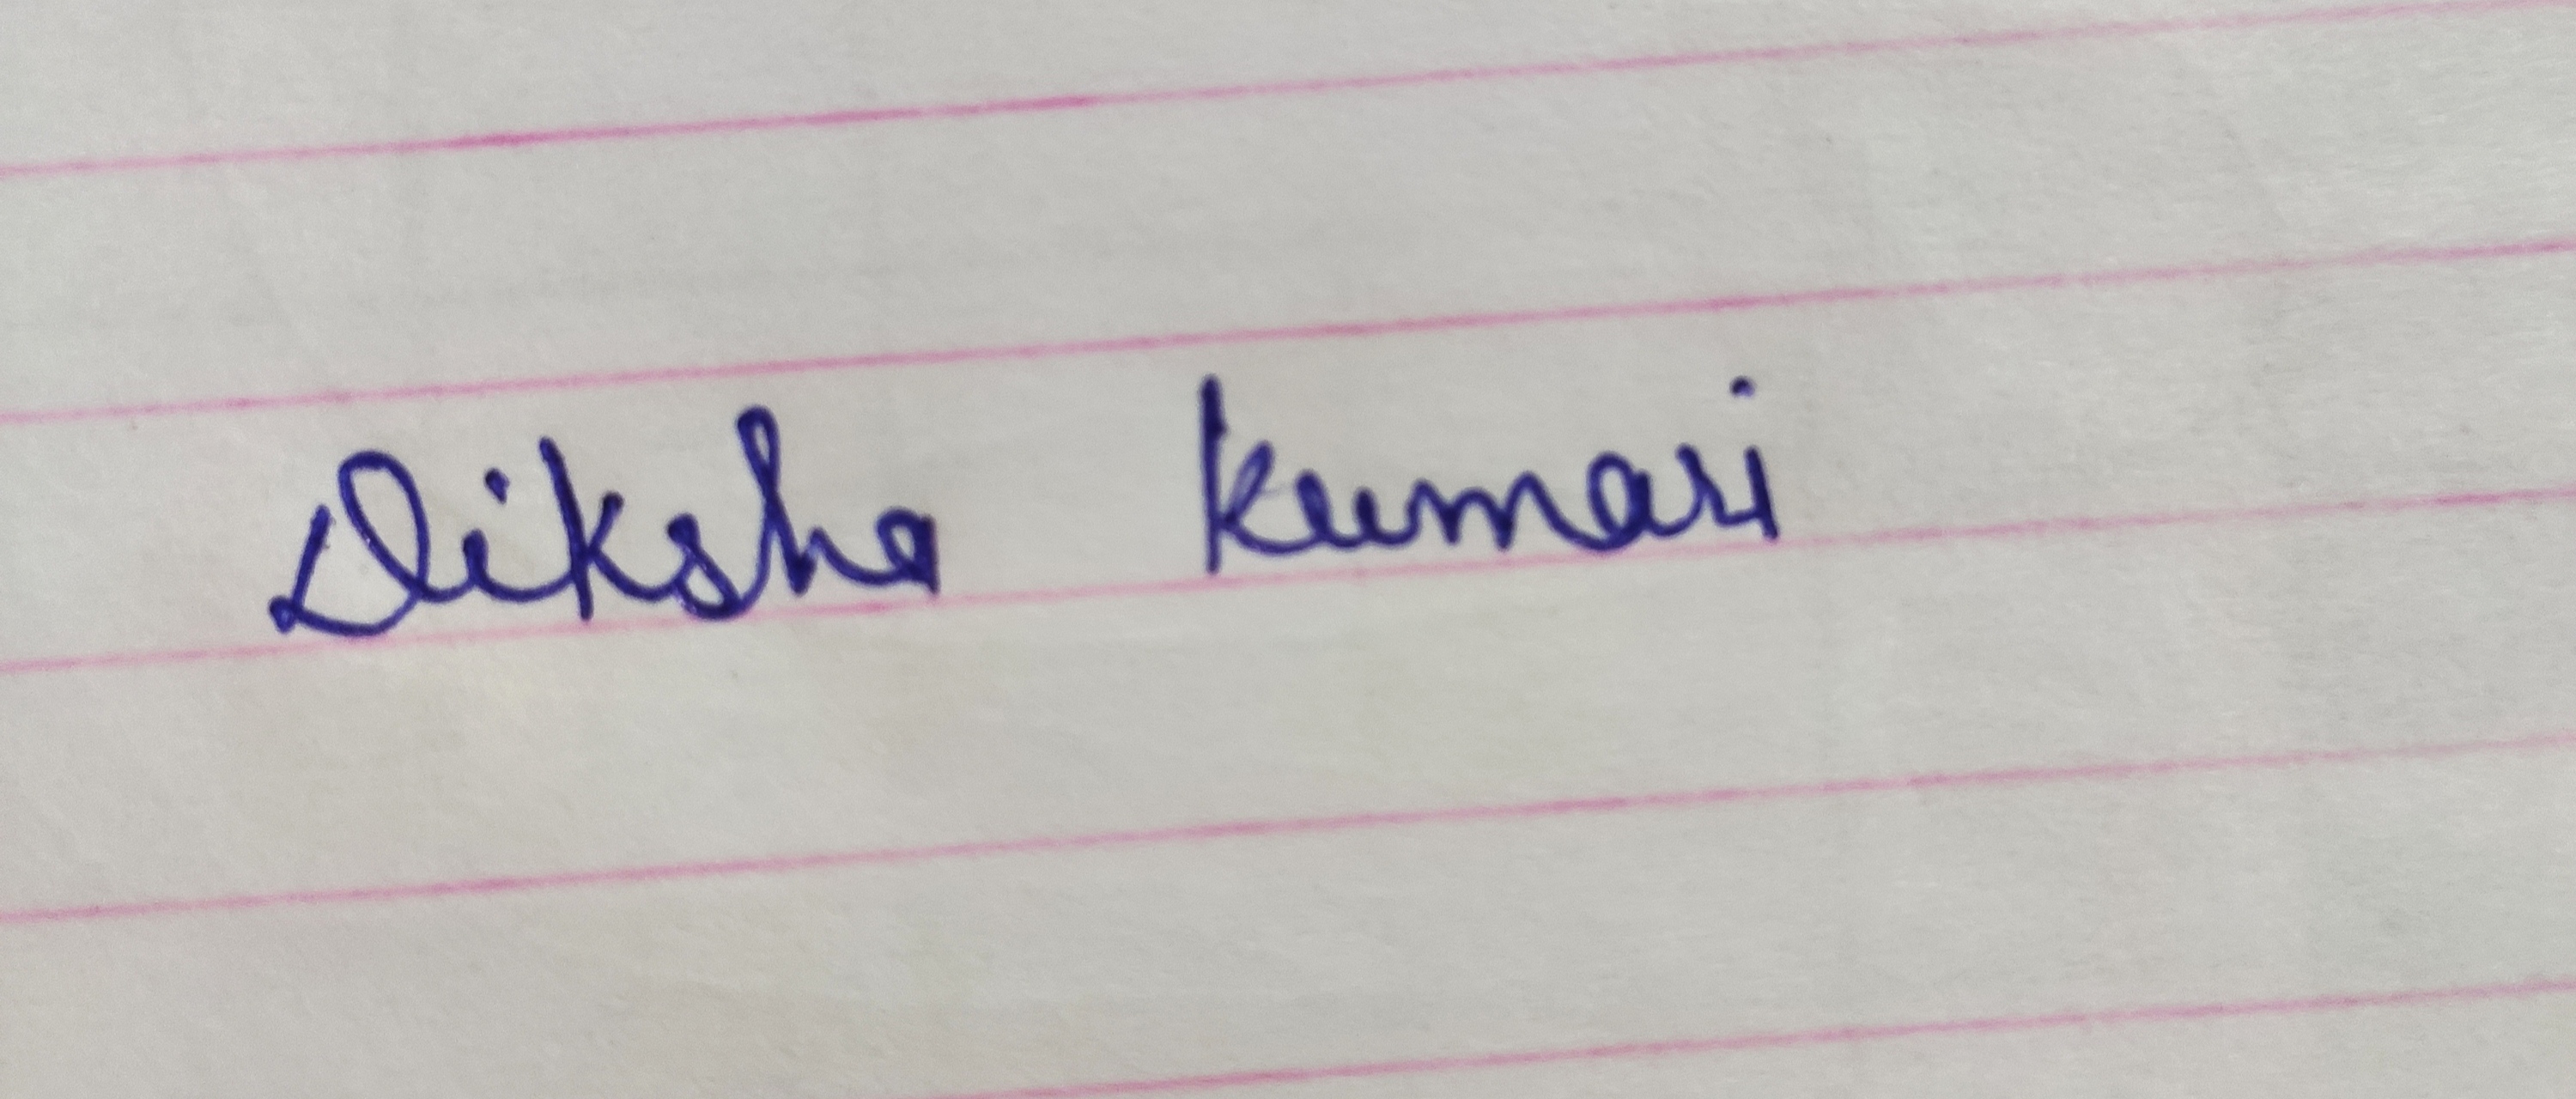 Diksha Kumari